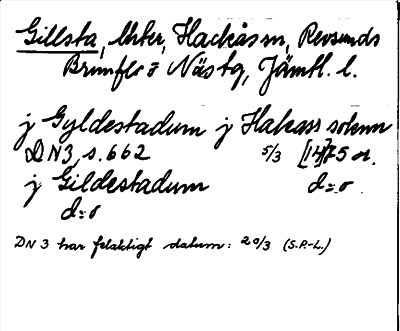 Gillsta, Utter, Hackås sn, Revsunds
Brunflo o Näs tg, Jämtl. l.
j Gyldestadum j Hakass soknn
DN3, s. 662 5/3 [14]75 or.
j Gildestadum d:o
d:o
DN 3 har felaktigt datum: 20/3 (S.P.-L.)